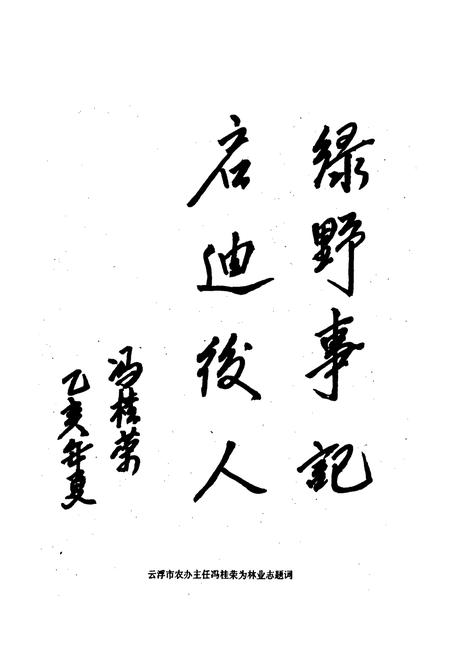 绿野事记
启迪後人
冯桂荣
乙亥年夏
云浮市农办主任冯桂荣为林业志题词